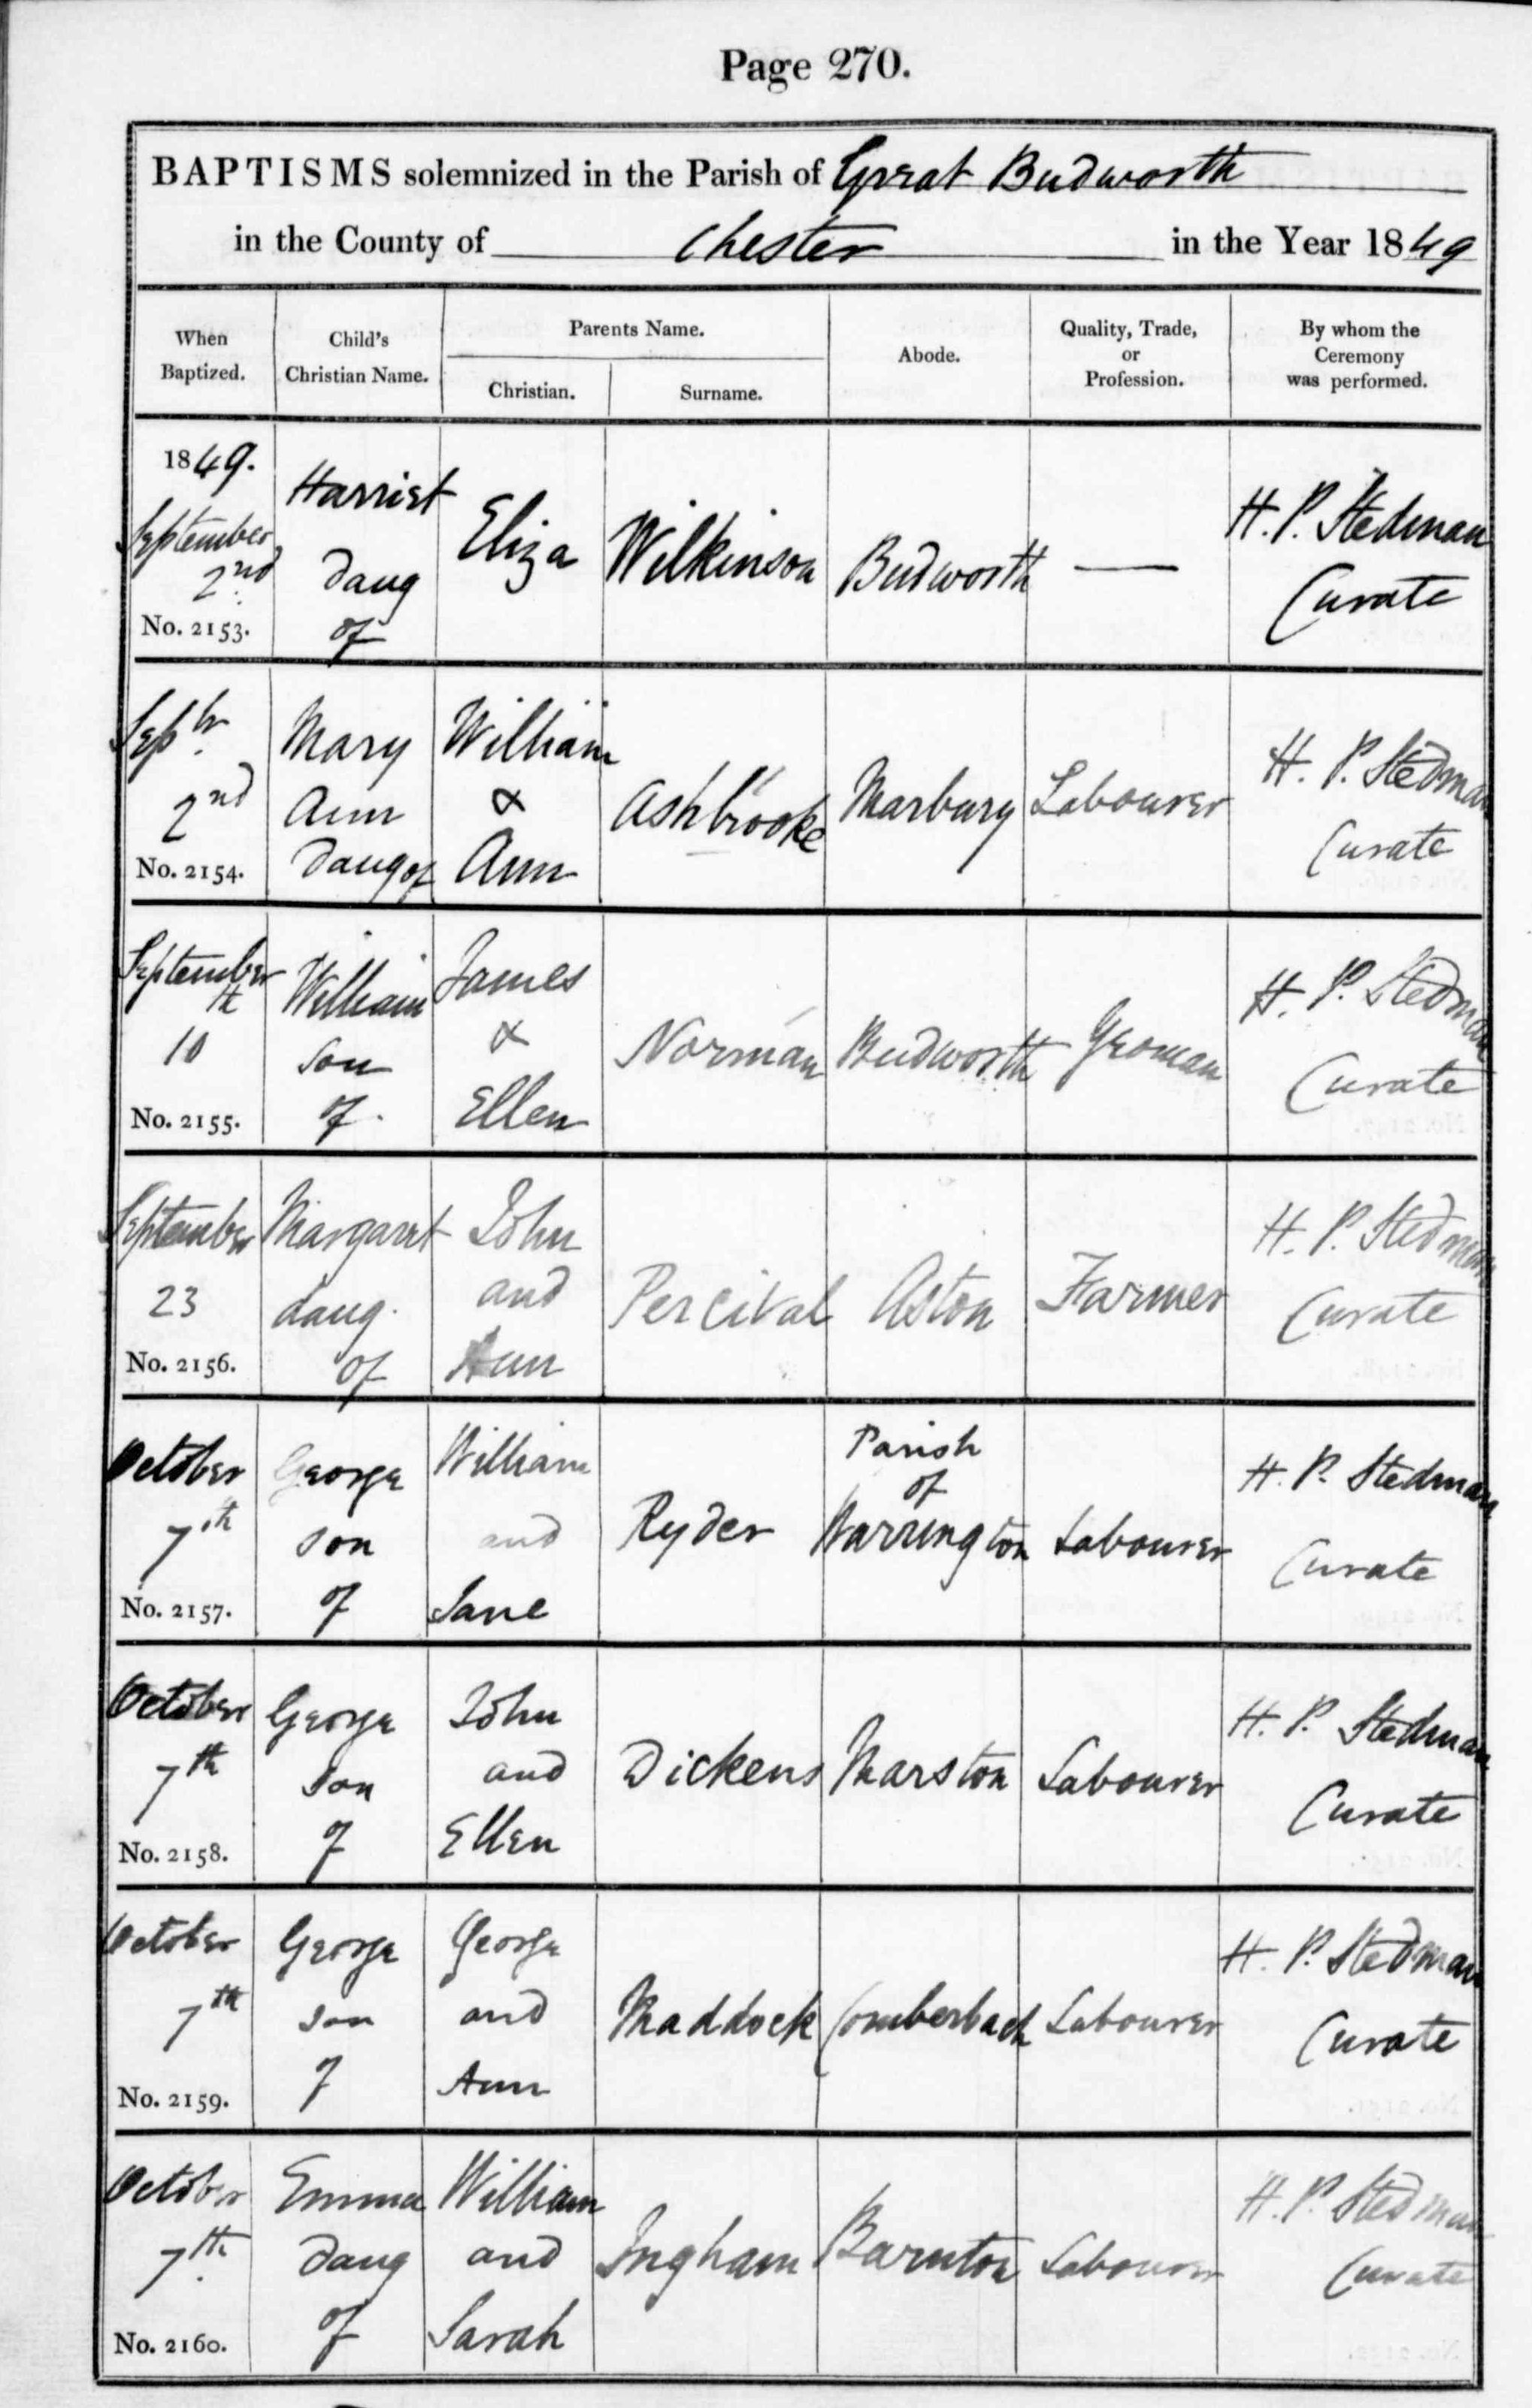 Page 270.
BAPTISMS solemnized in the Parish of Great Budworth
in the County of Chester in the Year 1849
When Baptized.
Child's Christian Name.
Parents Name.
Christian.
Surname.
Abode.
Quality, Trade, or Profession.
By whom the Ceremony was performed.
1849.
September
2nd
No. 2153.
Harriet
daug
of
Eliza
Wilkinson
Budworth
—
H. P. Stedman
Curate
Sepbr.
2nd
No. 2154.
Mary
Ann
daug of
William
&
Ann
Ashbrooke
Marbury
Labourer
H. P. Stedman
Curate
September
th
10
No. 2155.
William
son
of.
James
&
Ellen
Norman
Budworth
Yeoman
H. P. Stedman
Curate
September
23
No. 2156.
Margaret
daug.
of
John
and
Ann
Percival
Aston
Farmer
H. P. Stedman
Curate
October
7th
No. 2157.
George
son
of
William
and
Jane
Ryder
Parish
of
Warrington
Labourer
H. P. Stedman
Curate
October
7th
No. 2158.
George
son
of
John
and
Ellen
Dickens
Marston
Labourer
H. P. Stedman
Curate
October
7th
No. 2159.
George
son
of
George
and
Ann
Maddock
Comberbach
Labourer
H. P. Stedman
Curate
October
7th.
No. 2160.
Emma
daug
of
William
and
Sarah
Ingham
Barnton
Labourer
H. P. Stedman
Curate